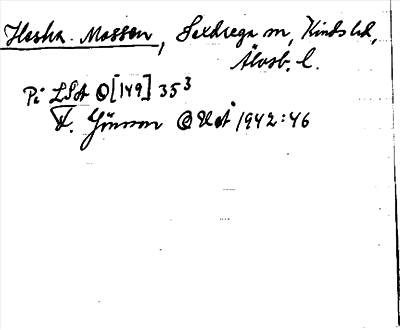 Haska Mossen, Seldrega m, Kinds hd,
Älvsb. l.
Pi LSA @[149] 35³
V. Jönsson @ UoÅ 1942:46